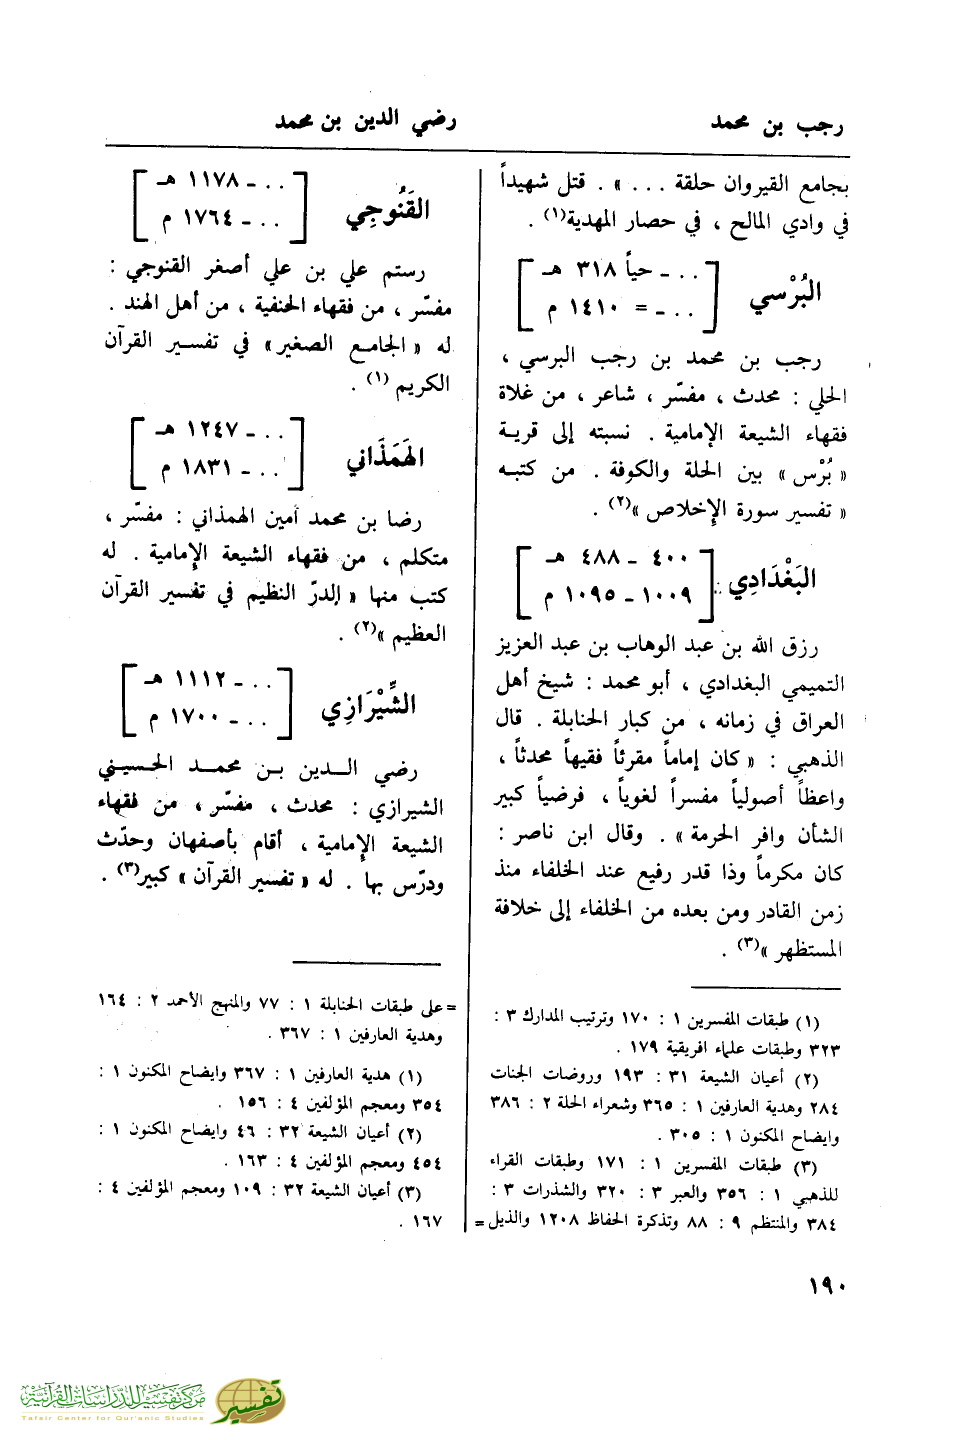 رجب بن محمد
رضي الدين بن محمد
بجامع القيروان حلقة ... » . قتل شهيداً
في وادي المالح ، في حصار المهدية(١) .
البُرْسي
[ . . ـ حياً ٣١٨ هـ
. . ـ = ١٤١٠ م ]
رجب بن محمد بن رجب البرسي ،
الحلي : محدث ، مفسّر ، شاعر ، من غلاة
فقهاء الشيعة الإمامية . نسبته إلى قرية
« بُرْس » بين الحلة والكوفة . من كتبه
« تفسير سورة الإخلاص »(٢) .
البَغْدَادِي
[ ٤٠٠ ـ ٤٨٨ هـ
١٠٠٩ ـ ١٠٩٥ م ]
رزق الله بن عبد الوهاب بن عبد العزيز
التميمي البغدادي ، أبو محمد : شيخ أهل
العراق في زمانه ، من كبار الحنابلة . قال
الذهبي : « كان إماماً مقرئاً فقيهاً محدثاً ،
واعظاً أصولياً مفسراً لغوياً ، فرضياً كبير
الشأن وافر الحرمة » . وقال ابن ناصر :
كان مكرماً وذا قدر رفيع عند الخلفاء منذ
زمن القادر ومن بعده من الخلفاء إلى خلافة
المستظهر »(٣) .
(١) طبقات المفسرين ١ : ١٧٠ وترتيب المدارك ٣ :
٣٢٣ وطبقات علماء افريقية ١٧٩ .
(٢) أعيان الشيعة ٣١ : ١٩٣ وروضات الجنات
٢٨٤ وهدية العارفين ١ : ٣٦٥ وشعراء الحلة ٢ : ٣٨٦
وايضاح المكنون ١ : ٣٠٥ .
(٣) طبقات المفسرين ١ : ١٧١ وطبقات القراء
للذهبي ١ : ٣٥٦ والعبر ٣ : ٣٢٠ والشذرات ٣ :
٣٨٤ والمنتظم ٩ : ٨٨ وتذكرة الحفاظ ١٢٠٨ والذيل =
القَنُوجِي
[ . . ـ ١١٧٨ هـ
. . ـ ١٧٦٤ م ]
رستم علي بن علي أصغر القنوجي :
مفسّر ، من فقهاء الحنفية ، من أهل الهند .
له « الجامع الصغير » في تفسير القرآن
الكريم (١) .
الهَمَذَاني
[ . . ـ ١٢٤٧ هـ
. . ـ ١٨٣١ م ]
رضا بن محمد أمين الهمذاني : مفسّر ،
متكلم ، من فقهاء الشيعة الإمامية . له
كتب منها « الدرّ النظيم في تفسير القرآن
العظيم »(٢) .
الشِّيْرَازِي
[ . . ـ ١١١٢ هـ
. . ـ ١٧٠٠ م ]
رضي الدين بن محمد الحسيني
الشيرازي : محدث ، مفسّر ، من فقهاء
الشيعة الإمامية ، أقام بأصفهان وحدّث
ودرّس بها . له « تفسير القرآن » كبير(٣) .
= على طبقات الحنابلة ١ : ٧٧ والمنهج الأحمد ٢ : ١٦٤
وهدية العارفين ١ : ٣٦٧ .
(١) هدية العارفين ١ : ٣٦٧ وايضاح المكنون ١ :
٣٥٤ ومعجم المؤلفين ٤ : ١٥٦ .
(٢) أعيان الشيعة ٣٢ : ٤٦ وايضاح المكنون ١ :
٤٥٤ ومعجم المؤلفين ٤ : ١٦٣ .
(٣) أعيان الشيعة ٣٢ : ١٠٩ ومعجم المؤلفين ٤ :
١٦٧ .
١٩٠
مركز تفسير للدراسات القرآنية
Tafsir Center for Qur'anic Studies
تفسير